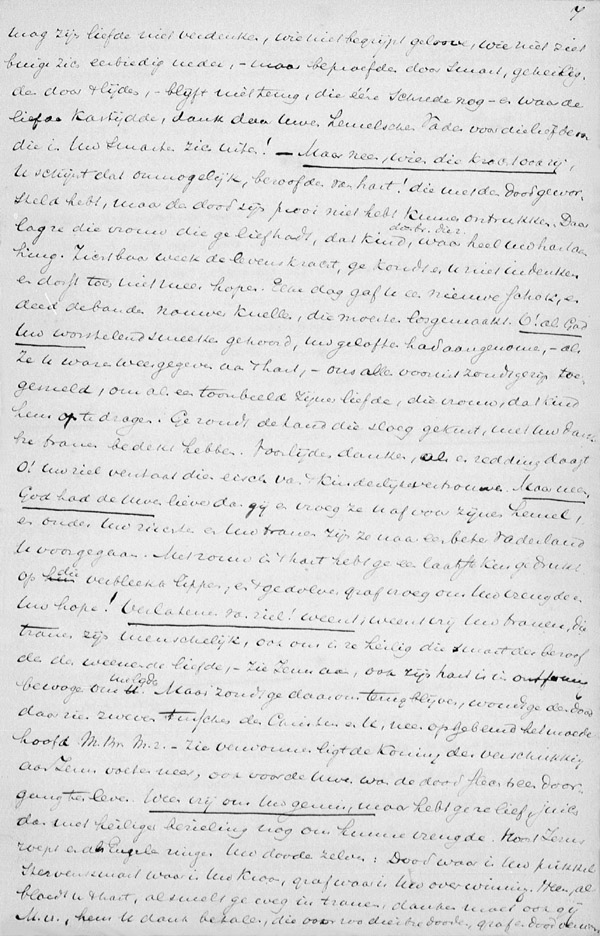 7
mag zijn liefde niet verdenken, wie niet begrijpt geloove, wie niet ziet
buige zich eerbiedig neder, - maar beproefden door smart, geheilig-
de door 't lijden, - blijft niet terug, die ééne schrede nog - en waar de
liefde kastijdde, dank daar Uwen hemelschen Vader voor die liefde
die in Uw smarte zich uitte! - Maar neen, wien die kracht
U schijnt dat onmogelijk, beroofde van hart! die met de dood gewor-
steld hebt, maar de dood zijn prooi niet hebt kunnen ontrukken. Daar
lag ze die vrouw die ge lief hadt, dat kind, waar heel Uw hart aan
hing. Zichtbaar week de levenskracht, ge kondt er U niet in denken
en dorst toch niet meer hopen. Elke dag gaf U een nieuwe schok, en
deed de banden nauwer knellen, die moesten losgemaakt. O! als God
Uw worstelend smeeken gehoord, Uw gelofte had aangenomen, - als
ze U ware weergegeven aan 't hart, - ons allen voor niet zondig
gesneld, om als een toonbeeld Zijner liefde, die vrouw, dat kind
hem op te dragen. Ge zoudt de hand die sloeg gekust, met Uw dank-
bre tranen bedekt hebben. Voor lijden danken, als er redding daagt
O! Uw ziel verstaat dien eisch van 't kinderlijk vertrouwen. Maar neen,
God had de Uwen liever dan gij en vroeg ze U af voor zijnen hemel,
en onder Uw en Uw tranen zijn ze naar een beter Vaderland
U voorgegaan. Met rouw in 't hart hebt ge een laatsten kus gedrukt
op die verbleekte lippen, en 't gedolven graf vroeg om Uw vreugde en
Uw hope! Verlatene van ziel! weent, weent vrij Uw tranen, die
tranen zijn menschelijk, ook ons is ze heilig die smart der beroof
de der weenende liefde, - Zie Jezus aan, ook zijn hart is in
bewogen om U. Maar zondig daarom terugblijven, wondige den dood
daar zien zweven tusschen den Christen en U, neen opgebeurd het moede
hoofd M. Br. M. Z. - Zie verwonnen ligt de Koning der verschrikking
aan Jezus voeten neer, ook voor de Uwen was de dood slechts een door-
gang ten leven. Ween vrij om Uw gemis, maar hebt ge ze lief, juich
dan met heilige bezieling nog om hunne vreugde. Hoort Jezus
roept en de Engelen zingen Uw dooden zelven: Dood waar is Uw prikkel
Stervenssmart waar is Uw kroon, graf waar is Uw overwinning. Neen, al
bloedt U 't hart, al smelt ge weg in tranen, danken moet ook gij
M. v., hem U dank betalen, die voor zoo dierbre dooden, graf en dood verwon.